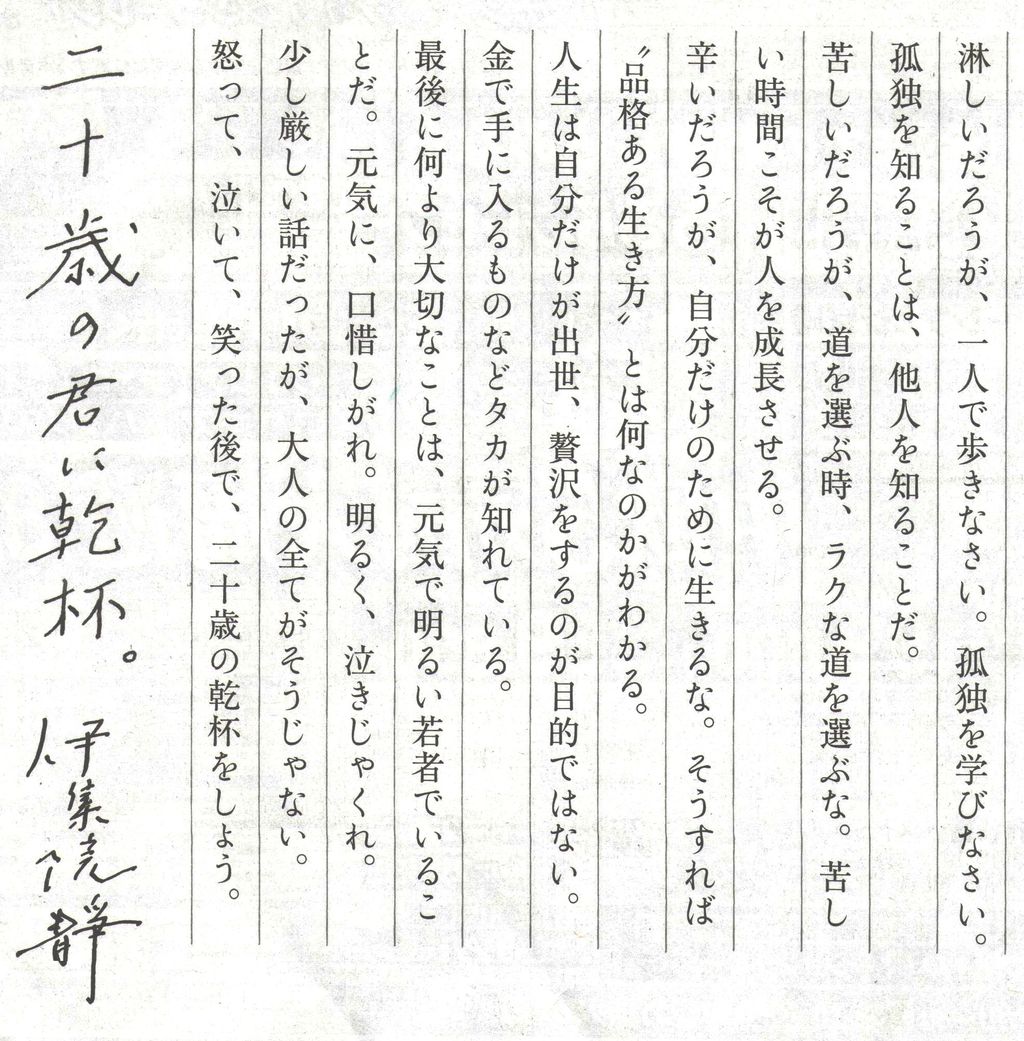 淋しいだろうが、一人で歩きなさい。孤独を学びなさい。
孤独を知ることは、他人を知ることだ。
苦しいだろうが、道を選ぶ時、ラクな道を選ぶな。苦し
い時間こそが人を成長させる。
辛いだろうが、自分だけのために生きるな。そうすれば
〝品格ある生き方〟とは何なのかがわかる。
人生は自分だけが出世、贅沢をするのが目的ではない。
金で手に入るものなどタカが知れている。
最後に何より大切なことは、元気で明るい若者でいるこ
とだ。元気に、口惜しがれ。明るく、泣きじゃくれ。
少し厳しい話だったが、大人の全てがそうじゃない。
怒って、泣いて、笑った後で、二十歳の乾杯をしょう。
二十歳の君に乾杯。 伊集院静